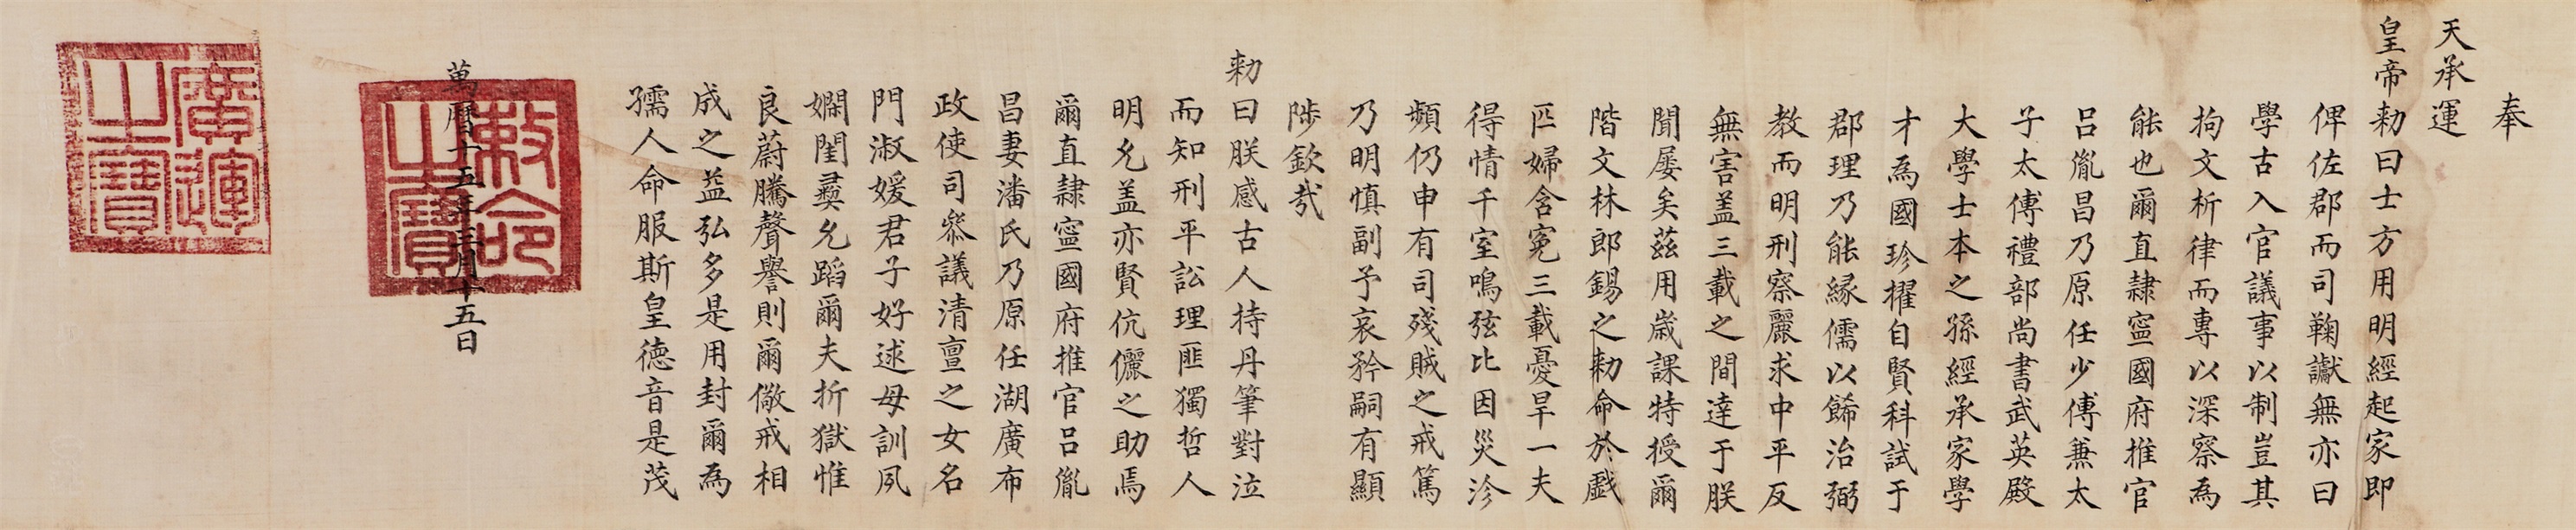 奉
天承運
皇帝勑曰士方用明經起家即
俾佐郡而司鞠讞無亦曰
學古入官議事以制豈其
拘文析律而專以深察為
能也爾直隸寧國府推官
呂胤昌乃原任少傅兼太
子太傅禮部尚書武英殿
大學士本之孫經承家學
才為國珍擢自賢科試于
郡理乃能緣儒以餙治弼
教而明刑察麗求中平反
無害盖三載之間達于朕
聞屢矣茲用歲課特授爾
階文林郎錫之勑命於戲
匹婦含寃三載憂旱一夫
得情千室鳴弦比因災沴
頻仍申有司殘賊之戒篤
乃明慎副予哀矜嗣有顯
陟欽哉
勑曰朕感古人持丹筆對泣
而知刑平訟理匪獨哲人
明允盖亦賢伉儷之助焉
爾直隸寧國府推官呂胤
昌妻潘氏乃原任湖廣布
政使司叅議清亶之女名
門淑媛君子好逑母訓夙
嫻閨彞允蹈爾夫折獄惟
良蔚騰聲譽則爾儆戒相
成之益弘多是用封爾為
孺人命服斯皇德音是茂
萬曆十五年三月十五日
敕命之寶
廣運之寶